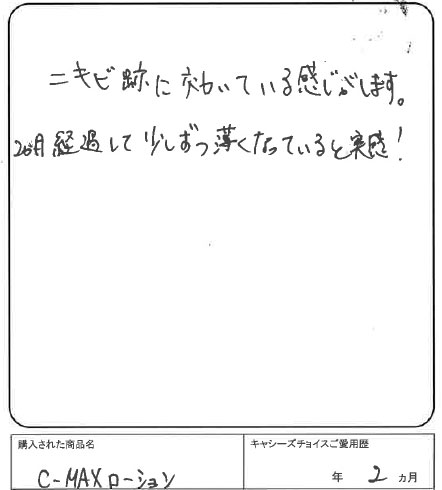 ニキビ跡に効いている感じがします。
2ヶ月経過して少しずつ薄くなっていると実感！
購入された商品名
キャシーズチョイスご愛用歴
C-MAXローション
年 2 ヵ月